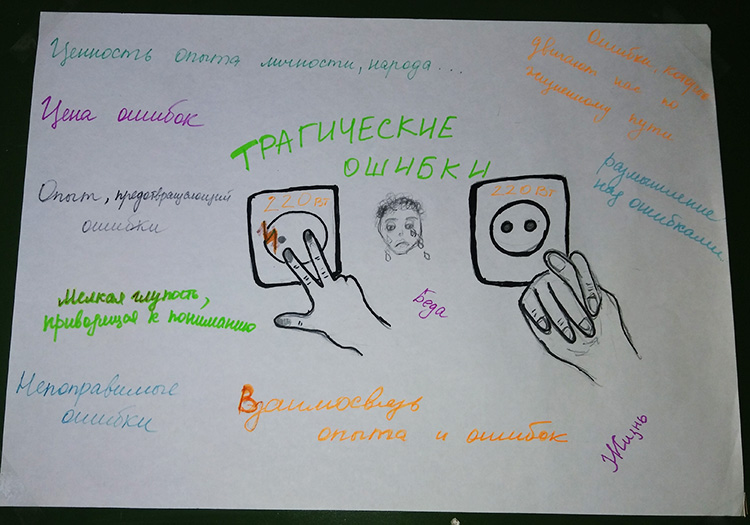 Ценность опыта личности, народа...
Ошибки, которые
двигают нас по
жизненному пути
Цена ошибок
ТРАГИЧЕСКИЕ
ОШИБКИ
Опыт, предотвращающий
ошибки
размышление
над ошибками
220Вт
220Вт
Мелкая глупость,
приводящая к пониманию
Беда
Непоправимые
ошибки
Взаимосвязь
опыта и ошибок
Жизнь